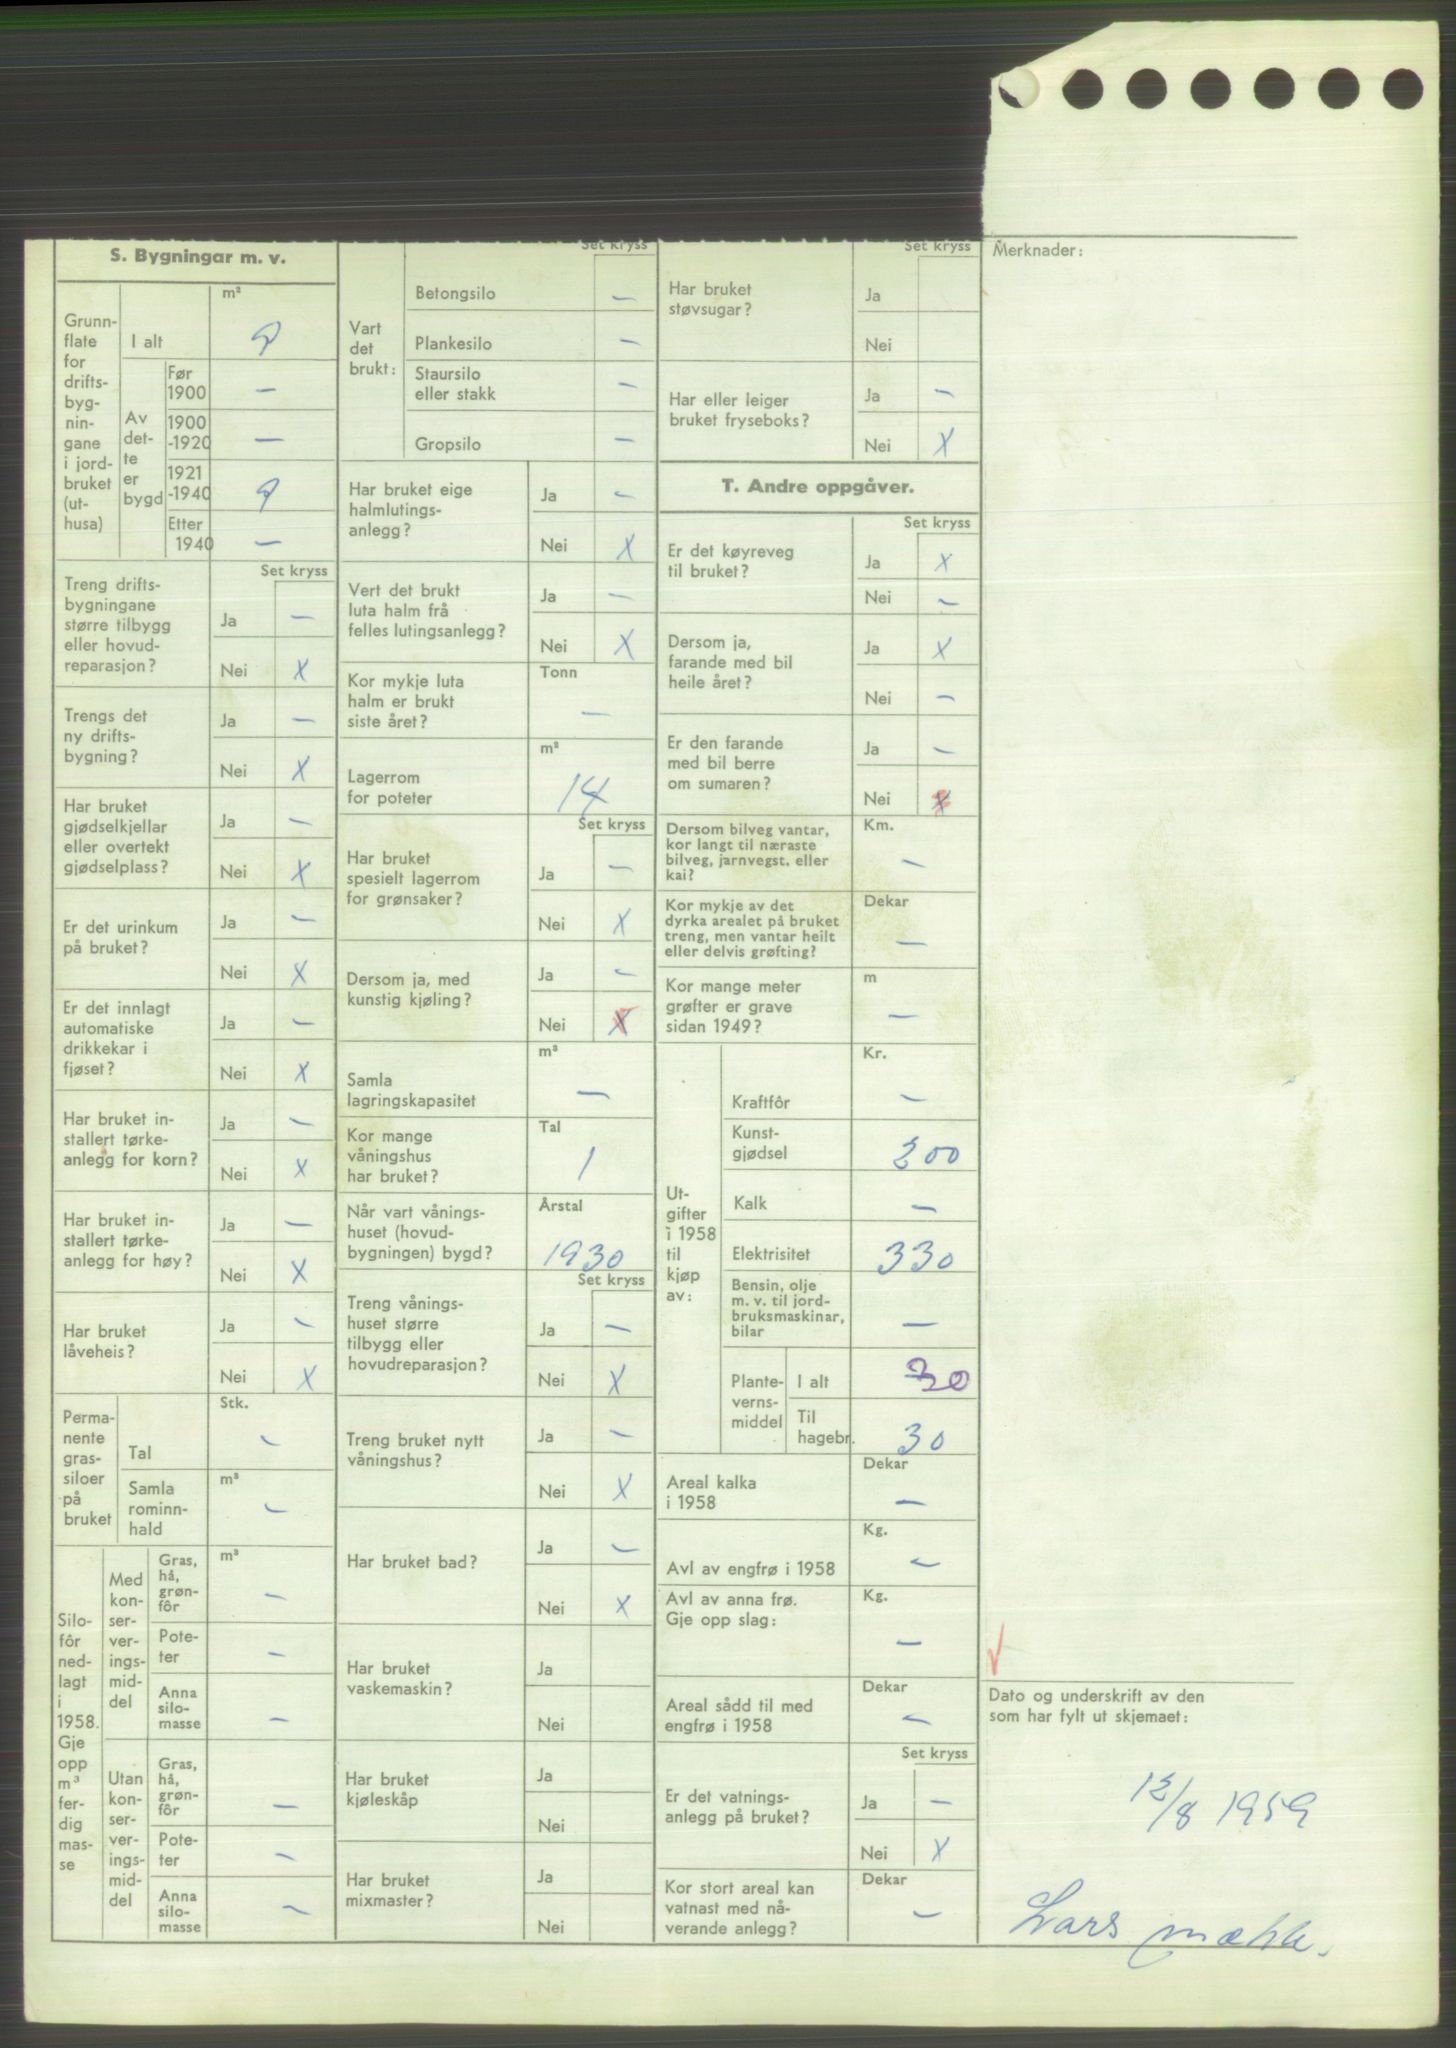 S. Bygningar m. v.
Grunn-
flate
for
drifts-
byg-
nin-
gane
i jord-
bruket
(ut-
husa)
m²
I alt 9
Av
det-
te
er
bygd
Før
1900 —
1900
-1920 —
1921
-1940 9
Etter
1940 —
Set kryss
Treng drifts-
bygningane
større tilbygg
eller hovud-
reparasjon?
Ja —
Nei X
Trengs det
ny drifts-
bygning?
Ja —
Nei X
Har bruket
gjødselkjellar
eller overtekt
gjødselplass?
Ja —
Nei X
Er det urinkum
på bruket?
Ja —
Nei X
Er det innlagt
automatiske
drikkekar i
fjøset?
Ja —
Nei X
Har bruket in-
stallert tørke-
anlegg for korn?
Ja —
Nei X
Har bruket in-
stallert tørke-
anlegg for høy?
Ja —
Nei X
Har bruket
låveheis?
Ja —
Nei X
Perma-
nente
gras-
siloer
på
bruket
Stk.
Tal —
m³
Samla
rominn-
hald —
Silo-
fôr
ned-
lagt
i
1958.
Gje
opp
m³
fer-
dig
mas-
se
Med
kon-
ser-
ver-
ings-
mid-
del
m³
Gras,
hå,
grøn-
fôr —
Pote-
ter —
Anna
silo-
masse —
Utan
kon-
ser-
ver-
ings-
mid-
del
Gras,
hå,
grøn-
fôr —
Pote-
ter —
Anna
silo-
masse —
Set kryss
Vart
det
brukt:
Betongsilo —
Plankesilo —
Staursilo
eller stakk —
Gropsilo —
Har bruket eige
halmlutings-
anlegg?
Ja —
Nei X
Vert det brukt
luta halm frå
felles lutingsanlegg?
Ja —
Nei X
Kor mykje luta
halm er brukt
siste året?
Tonn
—
Lagerrom
for poteter
m²
14
Set kryss
Har bruket
spesielt lagerrom
for grønsaker?
Ja —
Nei X
Dersom ja, med
kunstig kjøling?
Ja —
Nei X
Samla
lagringskapasitet
m³
—
Kor mange
våningshus
har bruket?
Tal
1
Når vart vånings-
huset (hovud-
bygningen) bygd?
Årstal
1930
Set kryss
Treng vånings-
huset større
tilbygg eller
hovudreparasjon?
Ja —
Nei X
Treng bruket nytt
våningshus?
Ja —
Nei X
Har bruket bad?
Ja —
Nei X
Har bruket
vaskemaskin?
Ja
Nei
Har bruket
kjøleskåp
Ja
Nei
Har bruket
mixmaster?
Ja
Nei
Set kryss
Har bruket
støvsugar?
Ja
Nei
Har eller leiger
bruket fryseboks?
Ja —
Nei X
T. Andre oppgåver.
Set kryss
Er det køyreveg
til bruket?
Ja X
Nei —
Dersom ja,
farande med bil
heile året?
Ja X
Nei —
Er den farande
med bil berre
om sumaren?
Ja —
Nei X
Dersom bilveg vantar,
kor langt til næraste
bilveg, jarnvegst. eller
kai?
Km.
—
Kor mykje av det
dyrka arealet på bruket
treng, men vantar heilt
eller delvis grøfting?
Dekar
—
Kor mange meter
grøfter er grave
sidan 1949?
m
—
Ut-
gifter
i 1958
til
kjøp
av:
Kr.
Kraftfôr —
Kunst-
gjødsel 200
Kalk —
Elektrisitet 330
Bensin, olje
m. v. til jord-
bruksmaskinar,
bilar —
Plante-
verns-
middel
I alt 30
Til
hagebr. 30
Areal kalka
i 1958
Dekar
—
Avl av engfrø i 1958
Kg.
—
Avl av anna frø.
Gje opp slag:
Kg.
—
Areal sådd til med
engfrø i 1958
Dekar
—
Set kryss
Er det vatnings-
anlegg på bruket?
Ja —
Nei X
Kor stort areal kan
vatnast med nå-
verande anlegg?
Dekar
—
Merknader:
Dato og underskrift av den
som har fylt ut skjemaet:
12/8 1959
Lars